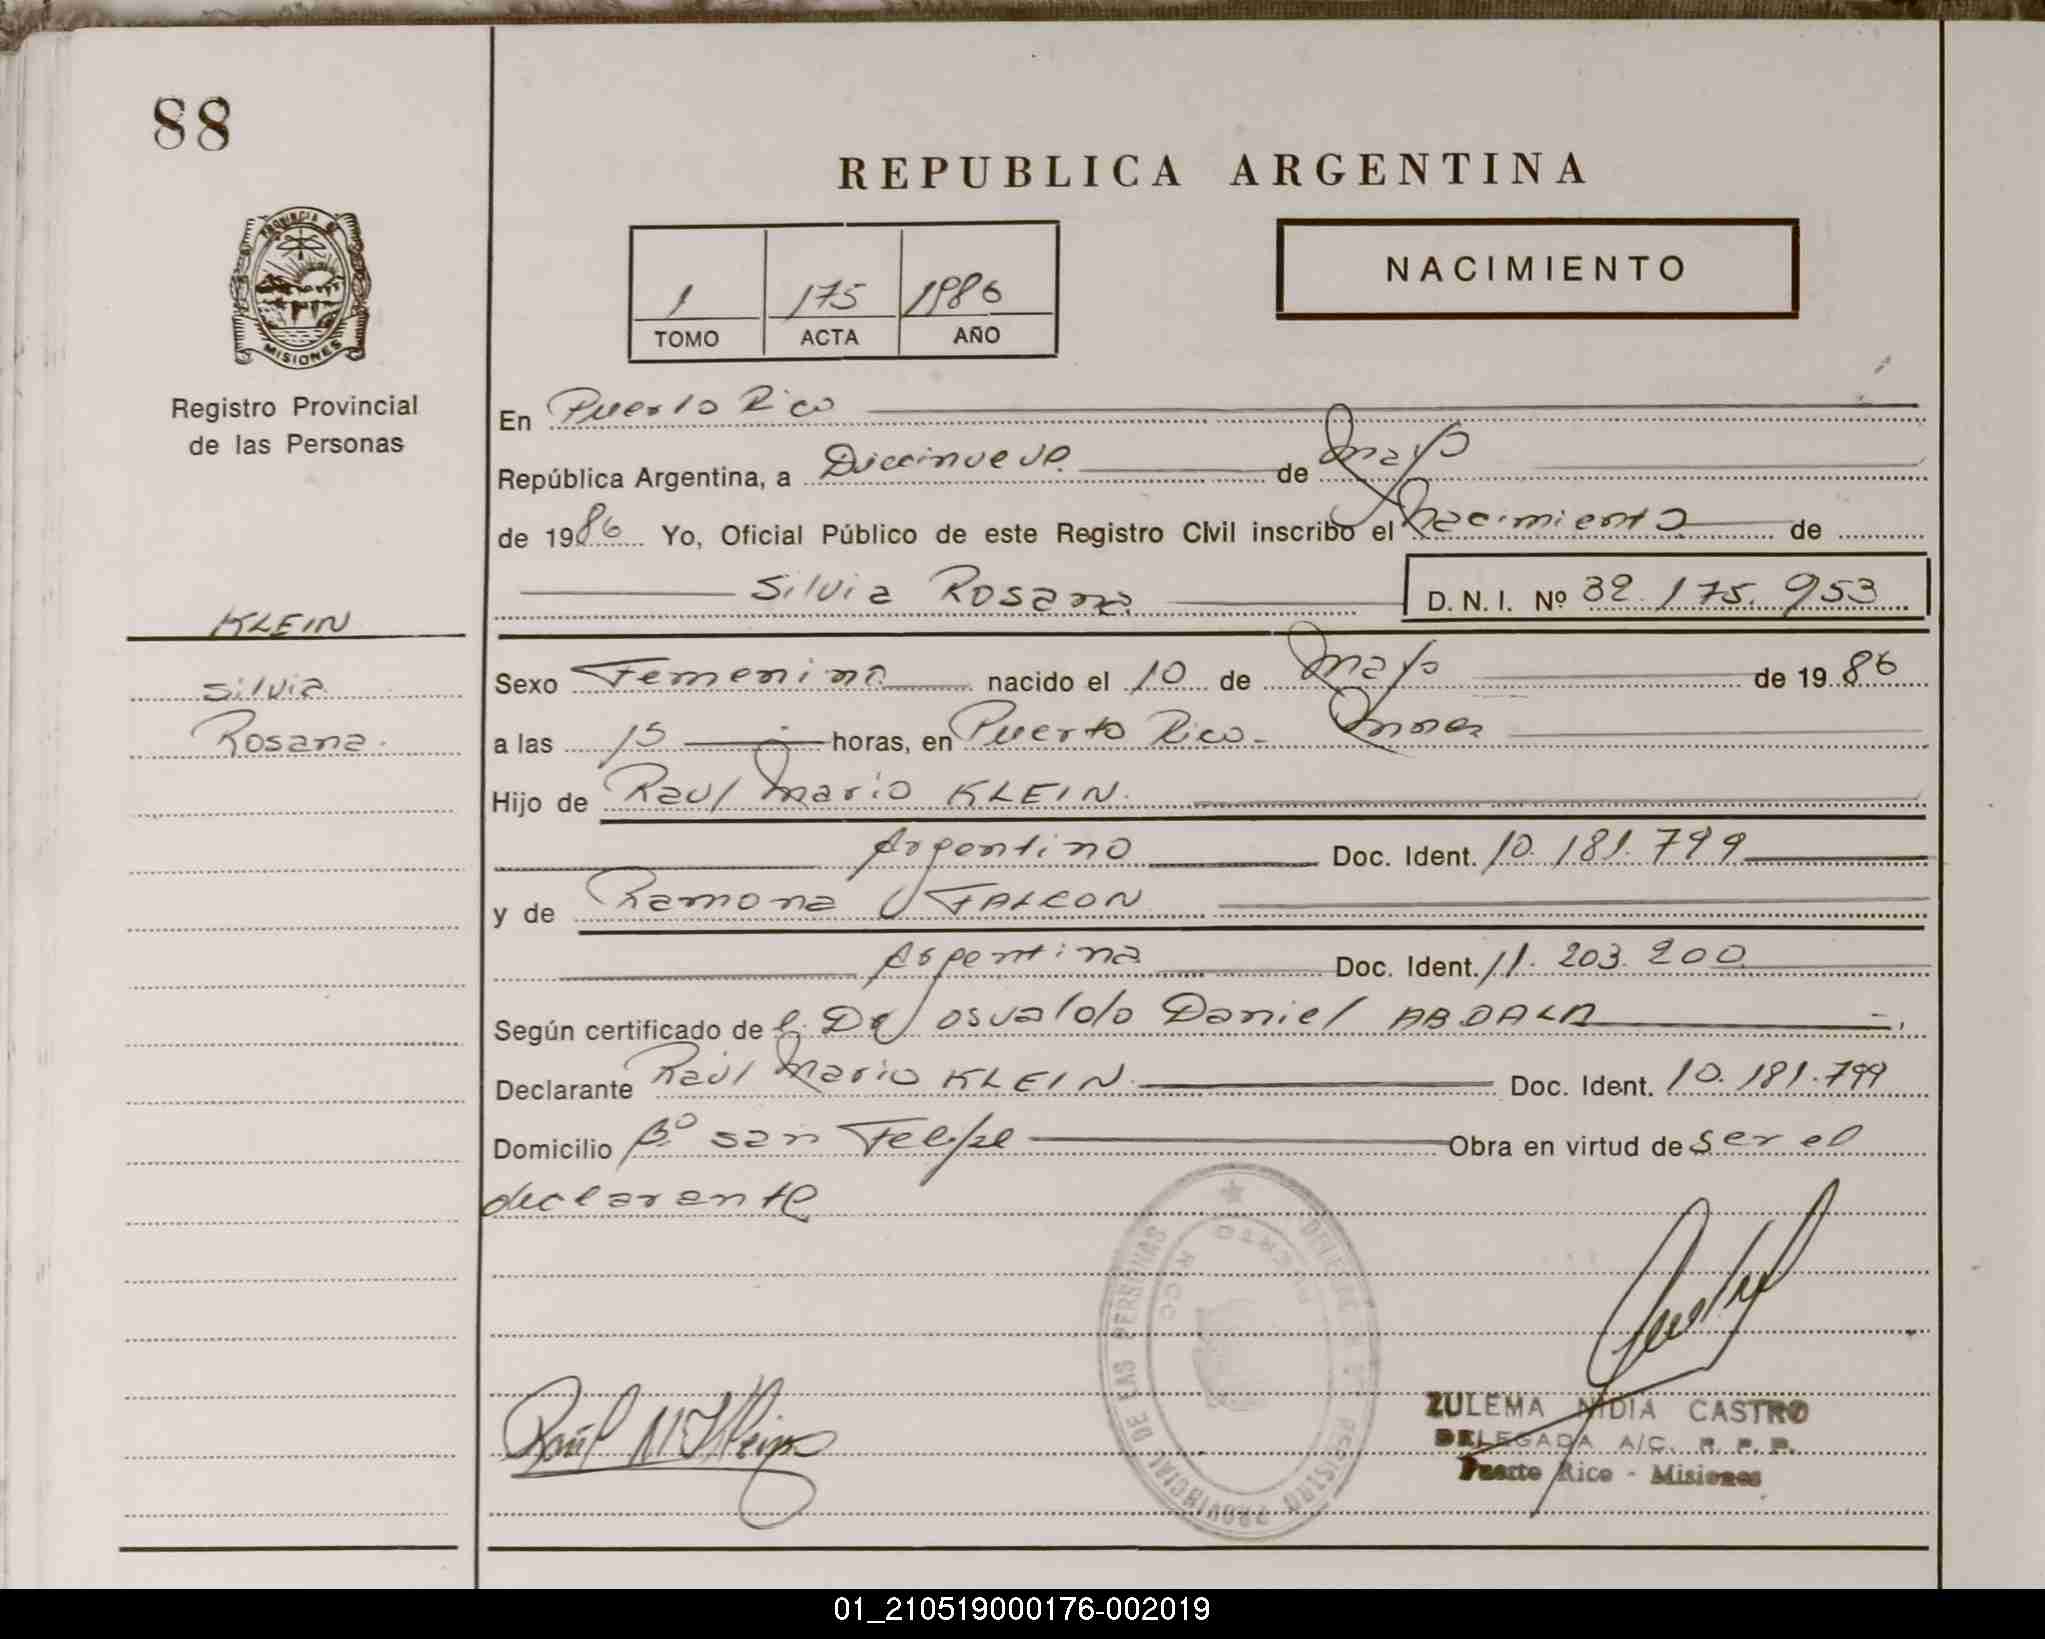 88
REPUBLICA ARGENTINA
PROVINCIA DE
MISIONES
Registro Provincial
de las Personas
1 175 1986
TOMO ACTA AÑO
NACIMIENTO
En Puerto Rico
República Argentina, a Diecinueve de Mayo
de 1986 Yo, Oficial Público de este Registro Civil inscribo el Nacimiento de
Silvia Rosana D.N.I. Nº 32.175.953
KLEIN
Silvia
Rosana.
Sexo Femenino nacido el 10 de Mayo de 1986
a las 15 horas, en Puerto Rico - Mnes
Hijo de Raul Mario KLEIN.
Argentino Doc. Ident. 10.181.799
y de Ramona FALCON
Argentina Doc. Ident. 11.203.200
Según certificado de Dr Osvaldo Daniel ABDALA
Declarante Raúl Mario KLEIN. Doc. Ident. 10.181.799
Domicilio Bº San Felipe Obra en virtud de ser el
declarante
PROVINCIAL DE LAS PERSONAS
PUERTO RICO
Raúl M Klein
ZULEMA NIDIA CASTRO
DELEGADA A/C. R. P. P.
Puerto Rico - Misiones
01_210519000176-002019